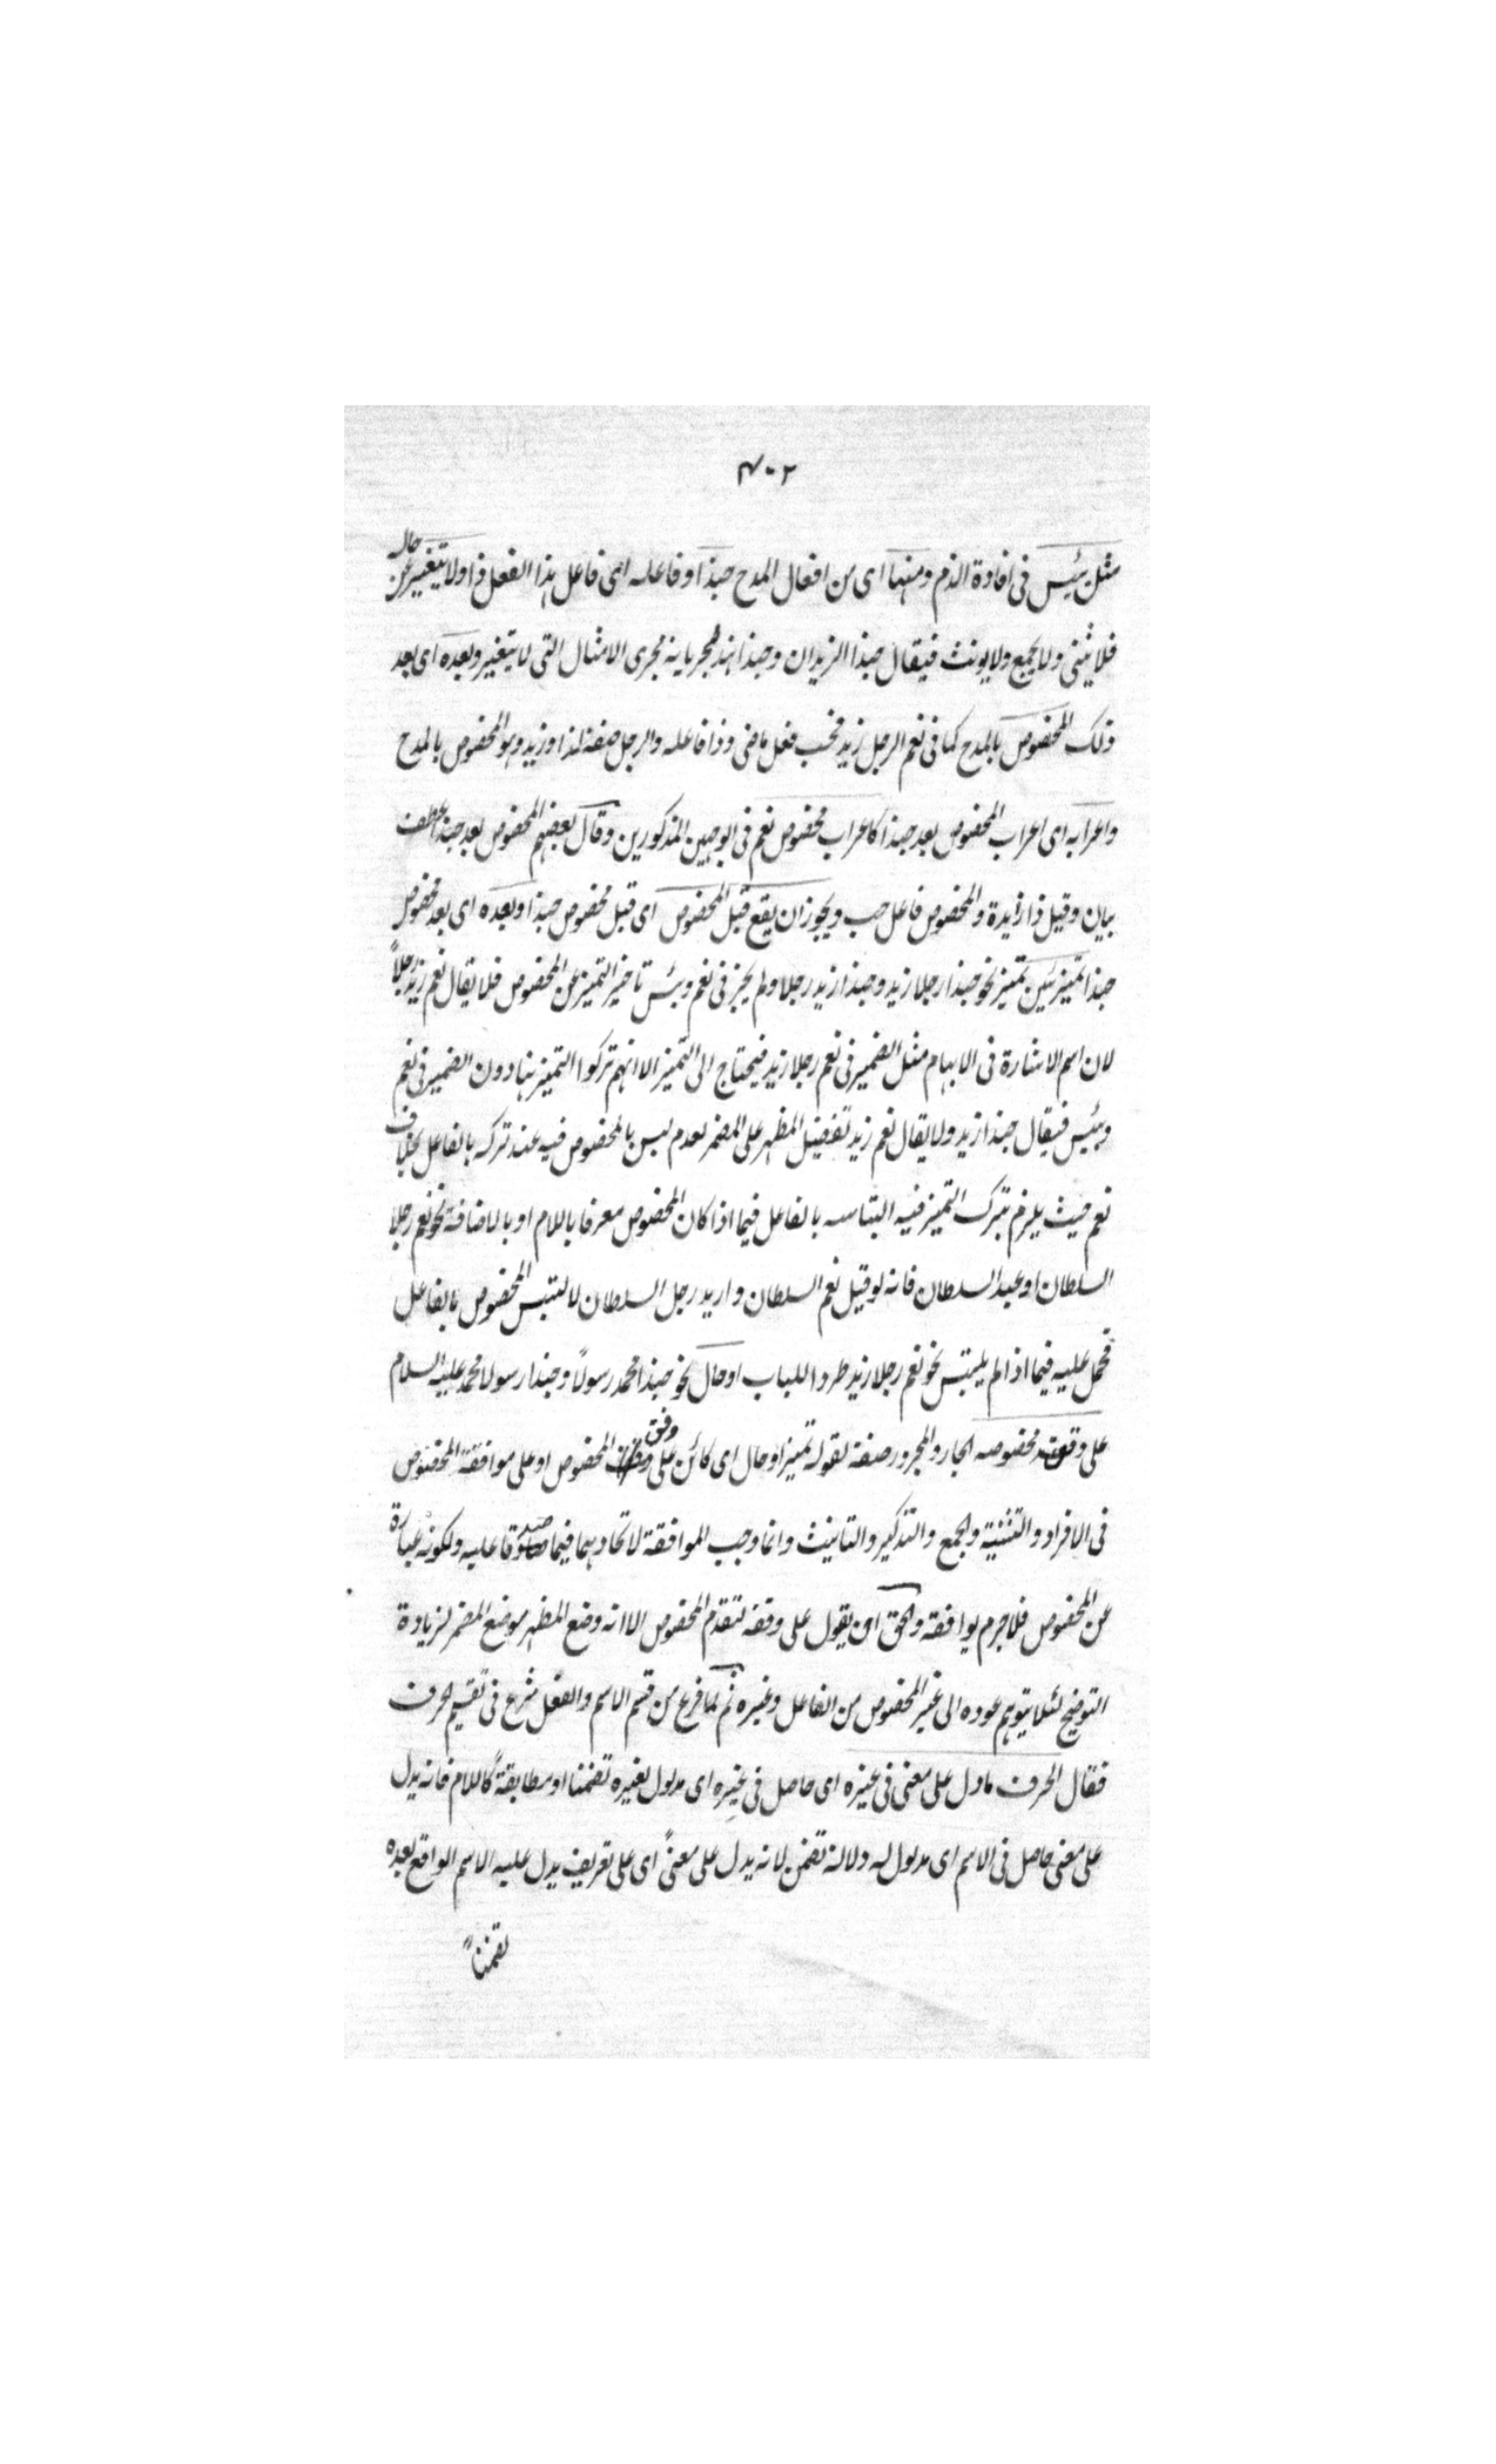 ٤٠٢
مثل بئس فى افادة الذم ومنها اى من افعال المدح حبذا وفاعله اى فاعل هذا الفعل ذا ولا يتغير عن حاله
فلا يثنى ولا يجمع ولا يونث فيقال حبذا الزيدان وحبذا هند لجريانه مجرى الامثال التى لا يتغير وبعده اى بعد
ذلك المخصوص بالمدح كما فى نعم الرجل زيد فحب فعل ماضى وذا فاعله والرجل صفة لذا وزيد وهو المخصوص بالمدح
واعرابه اى اعراب المخصوص بعد حبذا كاعراب مخصوص نعم فى الوجهين المذكورين وقال بعضهم المخصوص بعد حبذا عطف
بيان وقيل ذا زايدة والمخصوص فاعل حب ويجوز ان يقع قبل المخصوص اى قبل مخصوص حبذا وبعده اى بعد مخصوص
حبذا تميز نحو حبذا رجلا زيد وحبذا زيد رجلا ولم يجز فى نعم وبئس تاخير التميز عن المخصوص فلا يقال نعم زيد رجلاً
لان اسم الاشارة فى الابهام مثل الضمير فى نعم رجلا زيد فيحتاج الى التميز الا انهم تركوا التميز هنا دون الضمير فى نعم
وبئس فيقال حبذا زيد ولا يقال نعم زيد تفضيل المظهر على المضمر لعدم لبس بالمخصوص فيه عند تركه بالفاعل بخلاف
نعم حيث يلزم بترك التميز فيه التباسه بالفاعل فيما اذا كان المخصوص معرفا باللام او بالاضافة نحو نعم رجلا
السلطان او عبد السلطان فانه لو قيل نعم السلطان واريد رجل السلطان لالتبس المخصوص بالفاعل
فحمل عليه فيما اذا لم يلتبس نحو نعم رجلا زيد طردا للباب او حال نحو حبذا محمد رسولاً وحبذا رسولا محمد عليه السلام
على وفق مخصوصه الجار والمجرور صفة لقوله تميز او حال اى كائن على وفق المخصوص او على موافقة المخصوص
فى الافراد والتثنية والجمع والتذكير والتانيث وانما وجب الموافقة لاتحادهما فيما صدقا عليه ولكونه عبارة
عن المخصوص فلا جرم يوافقه والحق ان يقول على وفقه لتقدم المخصوص الا انه وضع المظهر موضع المضمر لزيادة
التوضيح لئلا يتوهم عوده الى غير المخصوص من الفاعل وغيره ثم لما فرغ من قسم الاسم والفعل شرع فى تقسيم الحرف
فقال الحرف ما دل على معنى فى غيره اى حاصل فى غيره اى مدلول لغيره تضمنا او مطابقةً كاللام فانه يدل
على معنى حاصل فى الاسم اى مدلول له دلالة تضمن لانه يدل على معنىً اى على تعريف يدل عليه الاسم الواقع بعده
تضمناً